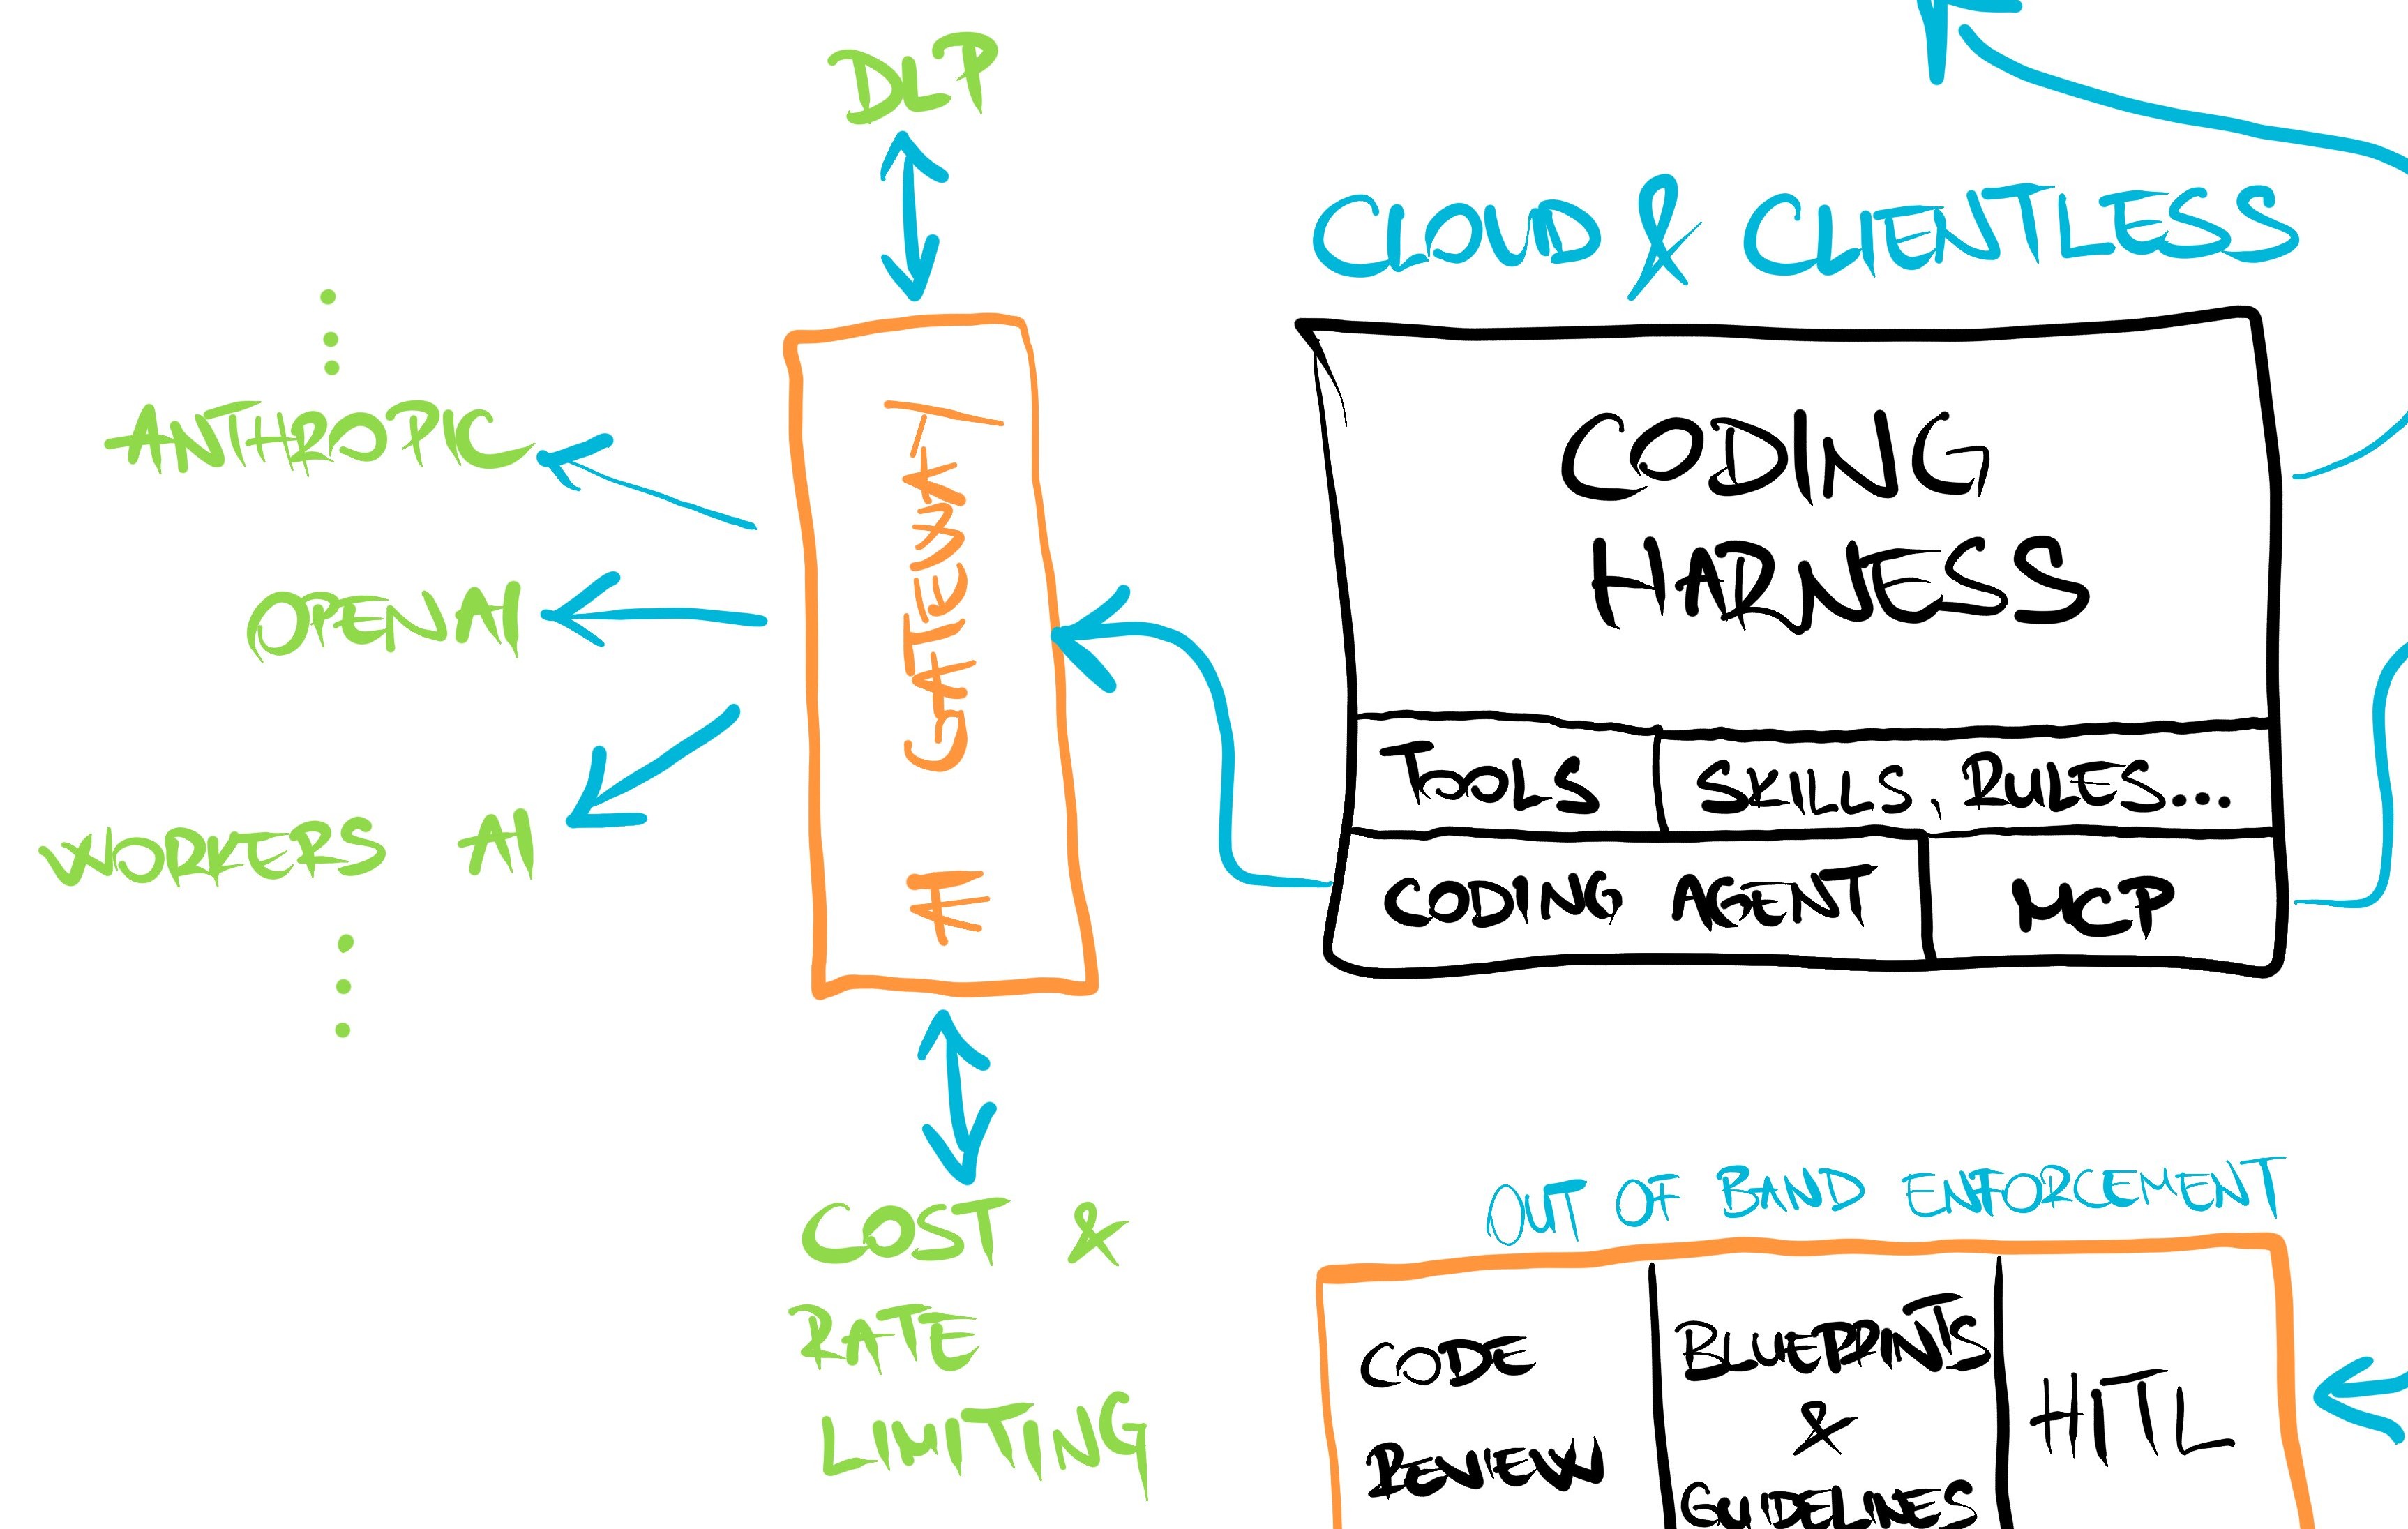 DLP
CLOUD & CLIENTLESS
ANTHROPIC
OPENAI
WORKERS AI
AI GATEWAY
CODING
HARNESS
TOOLS
SKILLS, RULES...
CODING AGENT
MCP
COST &
RATE
LIMITING
OUT OF BAND ENFORCEMENT
CODE
REVIEW
BLUEPRINTS
&
GUIDELINES
HITL